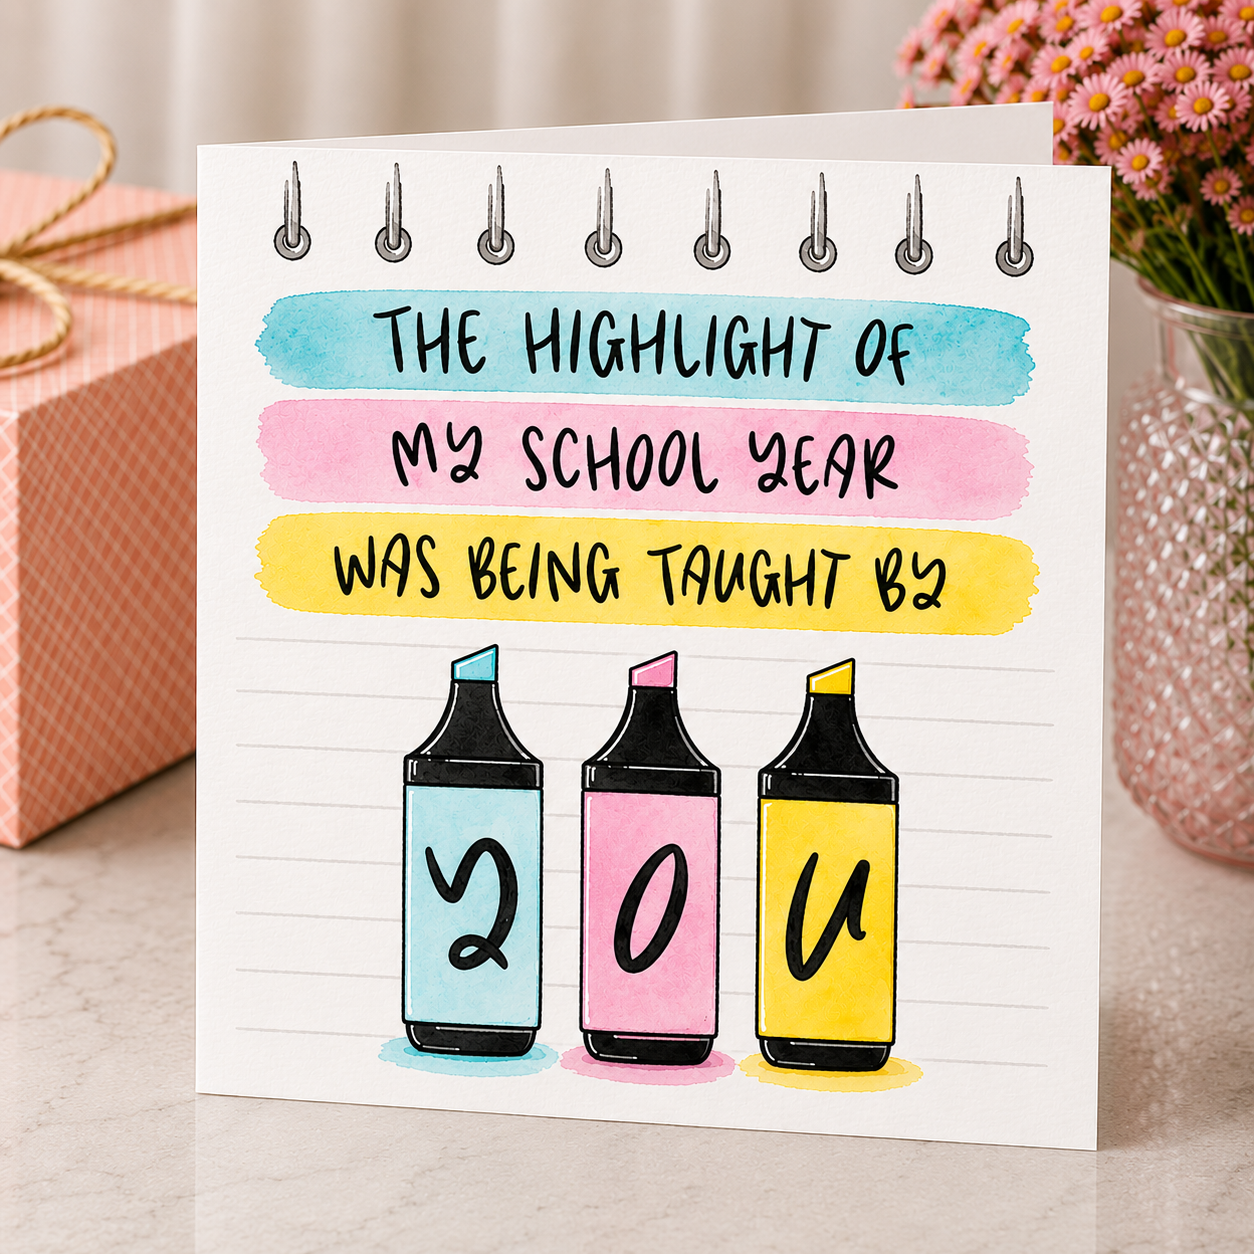 THE HIGHLIGHT OF
MY SCHOOL YEAR
WAS BEING TAUGHT BY
YOU